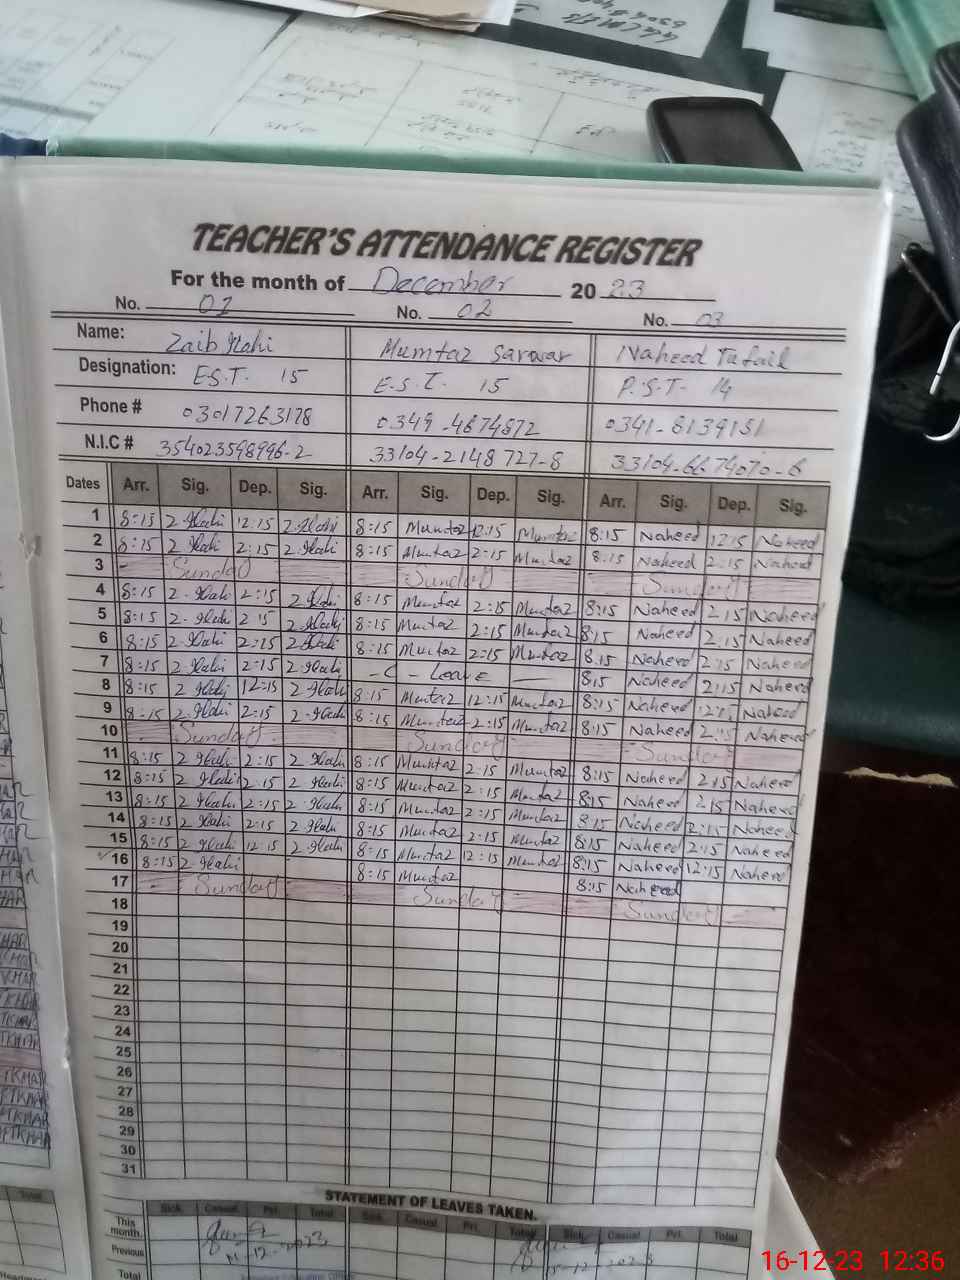 TEACHER'S ATTENDANCE REGISTER
For the month of December 2023
No. 01 No. 02 No. 03
Name: Zaib Ilahi Mumtaz Sarwar Naheed Tufail
Designation: E.S.T. 15 E.S.T. 15 P.S.T. 14
Phone # 03017263178 0349-4674872 0341-8139151
N.I.C # 354023598996-2 33104-2148727-8 33104-6674070-6
Dates Arr. Sig. Dep. Sig. Arr. Sig. Dep. Sig. Arr. Sig. Dep. Sig.
1 8:15 Z-Ilahi 12:15 Z-Ilahi 8:15 Mumtaz 12:15 Mumtaz 8:15 Naheed 12:15 Naheed
2 8:15 Z-Ilahi 2:15 Z-Ilahi 8:15 Mumtaz 2:15 Mumtaz 8:15 Naheed 2:15 Naheed
3 Sunday Sunday Sunday
4 8:15 Z-Ilahi 2:15 Z-Ilahi 8:15 Mumtaz 2:15 Mumtaz 8:15 Naheed 2:15 Naheed
5 8:15 Z-Ilahi 2:15 Z-Ilahi 8:15 Mumtaz 2:15 Mumtaz 8:15 Naheed 2:15 Naheed
6 8:15 Z-Ilahi 2:15 Z-Ilahi 8:15 Mumtaz 2:15 Mumtaz 8:15 Naheed 2:15 Naheed
7 8:15 Z-Ilahi 2:15 Z-Ilahi - C - Leave 8:15 Naheed 2:15 Naheed
8 8:15 Z-Ilahi 12:15 Z-Ilahi 8:15 Mumtaz 12:15 Mumtaz 8:15 Naheed 12:15 Naheed
9 8:15 Z-Ilahi 2:15 Z-Ilahi 8:15 Mumtaz 2:15 Mumtaz 8:15 Naheed 2:15 Naheed
10 Sunday Sunday Sunday
11 8:15 Z-Ilahi 2:15 Z-Ilahi 8:15 Mumtaz 2:15 Mumtaz 8:15 Naheed 2:15 Naheed
12 8:15 Z-Ilahi 2:15 Z-Ilahi 8:15 Mumtaz 2:15 Mumtaz 8:15 Naheed 2:15 Naheed
13 8:15 Z-Ilahi 2:15 Z-Ilahi 8:15 Mumtaz 2:15 Mumtaz 8:15 Naheed 2:15 Naheed
14 8:15 Z-Ilahi 2:15 Z-Ilahi 8:15 Mumtaz 2:15 Mumtaz 8:15 Naheed 2:15 Naheed
15 8:15 Z-Ilahi 12:15 Z-Ilahi 8:15 Mumtaz 12:15 Mumtaz 8:15 Naheed 12:15 Naheed
16 8:15 Z-Ilahi 8:15 Mumtaz 8:15 Naheed
17 Sunday Sunday Sunday
18
19
20
21
22
23
24
25
26
27
28
29
30
31
STATEMENT OF LEAVES TAKEN.
Sick Casual Pri. Total Sick Casual Pri. Total Sick Casual Pvt. Total
This month.
Previous
Total
16-12-23 12:36